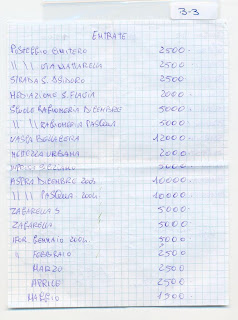 B-3
ENTRATE
POSTEGGIO CIMITERO 2500-
" " VIA MATTARELLA 2500-
STRADA S. ISIDORO 2500-
MEDIAZIONE S. FLAVIA 2000-
SCUOLE RAGIONERIA DICEMBRE 5000-
" " RAGIONERIA PASQUA 5000-
VASCA 12000-
NETTEZZA URBANA 2000-
ASTRA DICEMBRE 10000-
" " PASQUA 2004 10000-
ZABARELLA S 5000-
ZABARELLA 5000-
GENNAIO 2004 5000
" FEBBRAIO 2500
MARZO 2500
APRILE 2500
MAGGIO 1500